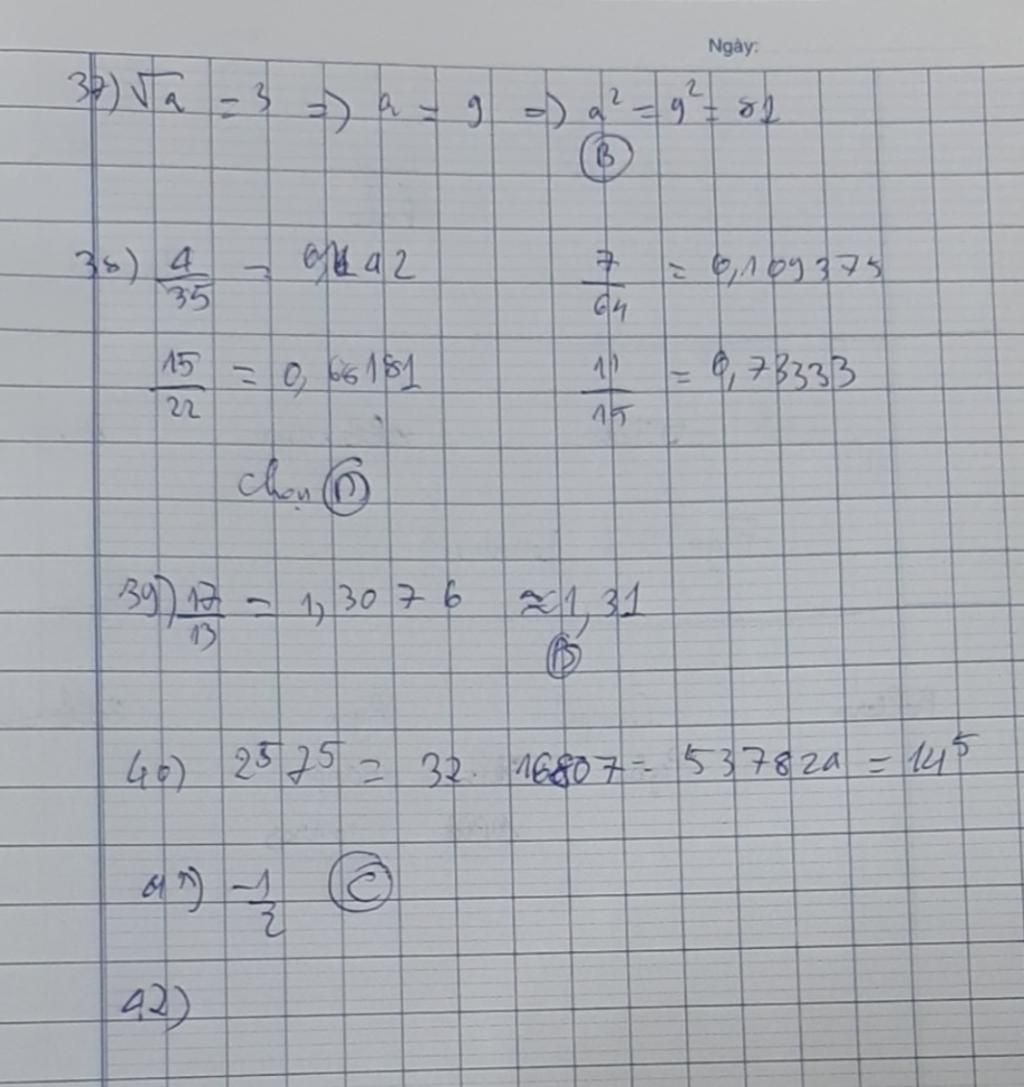 Ngày:
37) √a = 3 => a = 9 => a² = 9² = 81
(B)
38) 4/35 = 7/64 = 0,109375
15/22 = 0,68181 11/15 = 0,73333
Chọn
39) 17/13 = 1,3076 ≈ 1,31
(B)
40) 2⁵ 7⁵ = 32 . 16807 = 537824 = 14⁵
41) -1/2 (C)
42)